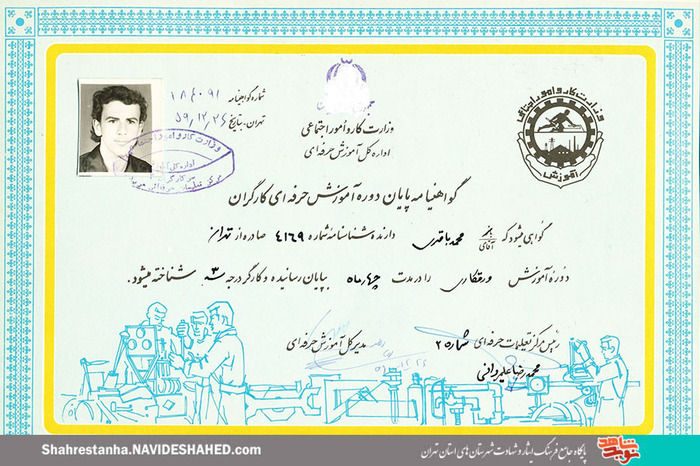 شماره گواهینامه ۱۸۴۰۹۱
تهران، بتاریخ ۵۹,۱۲,۲۴
وزارت کار و امور اجتماعی
اداره کل آموزش حرفه ای
وزارت کار و امور اجتماعی
آموزش
گواهینامه پایان دوره آموزش حرفه ای کارگران
گواهی میشود که آقای محمد باقری دارنده شناسنامه شماره ۴۱۶۹ صادره از تهران
دوره آموزش ورقکاری را در مدت چهار ماه بپایان رسانیده و کارگر درجه ۳ شناخته میشود.
رئیس مرکز تعلیمات حرفه ای شماره ۲
مدیر کل آموزش حرفه ای
محمدرضا علیمردانی
Shahrestanha.NAVIDESHAHED.com
پایگاه جامع فرهنگ ایثار و شهادت شهرستان های استان تهران
نوید شاهد